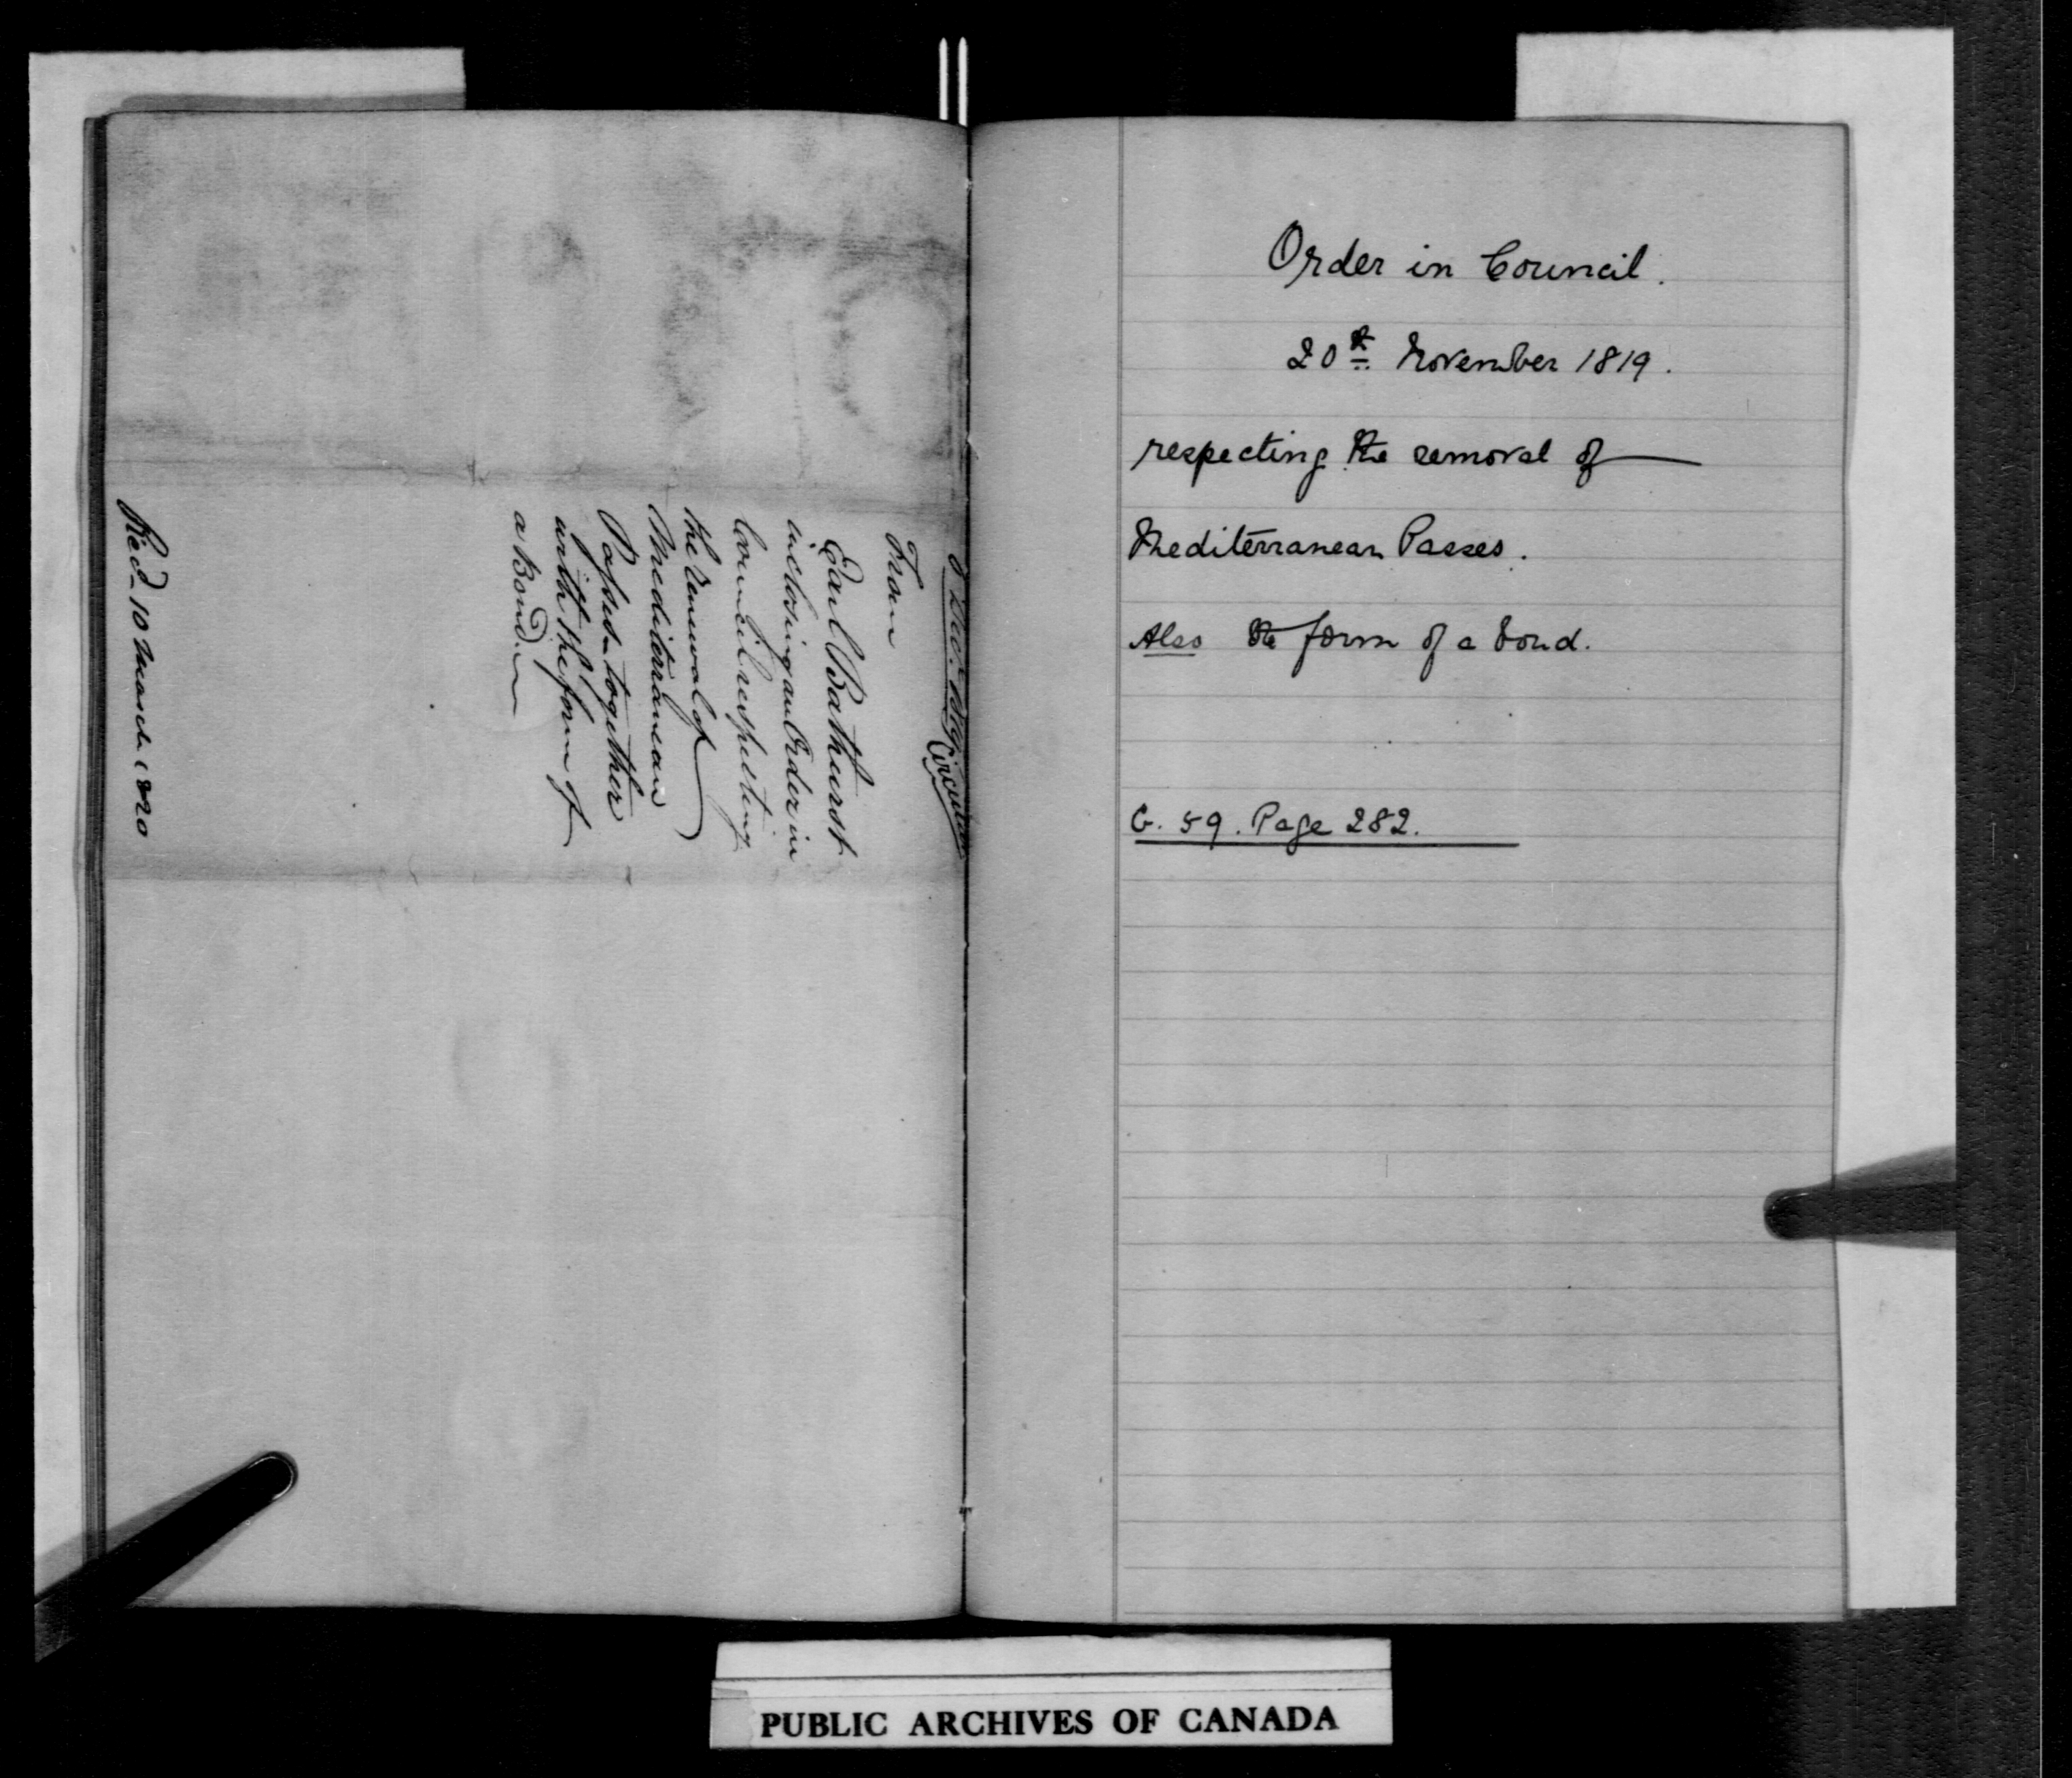 Circular
From
Earl Bathurst
inclosing an Order in
Council respecting
the renewal of
Mediterranean
Passes together
with the form of
a Bond.
Rec'd 10 March 1820
Order in Council.
20th November 1819.
respecting the removal of
Mediterranean Passes.
Also the form of a bond.
G. 59. Page 282.
PUBLIC ARCHIVES OF CANADA